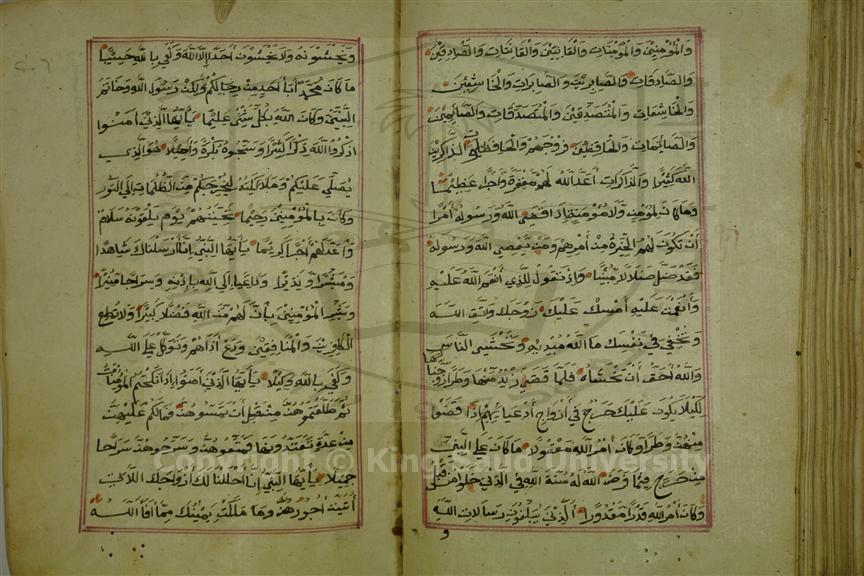 والمؤمنين والمؤمنات والقانتين والقانتات والصادقين
والصادقات والصابرين والصابرات والخاشعين
والخاشعات والمتصدقين والمتصدقات والصائمين
والصايمات والحافظين فروجهم والحافظات والذاكرين
الله كثيرا والذاكرات اعد الله لهم مغفرة واجرا عظيما
وما كان لمؤمن ولا مؤمنة إذا قضى الله ورسوله أمرا
أن تكون لهم الخيرة من أمرهم ومن يعص الله ورسوله
فقد ضل ضلالا مبينا وإذ تقول للذي أنعم الله عليه
وأنعمت عليه أمسك عليك زوجك واتق الله
وتخفي في نفسك ما الله مبديه وتخشى الناس
والله أحق أن تخشاه فلما قضى زيد منها وطرا زوجناكها
لكيلا يكون على حرج في أزواج أدعيائهم إذا قضوا
منهن وطرا وكان أمر الله مفعولا ما كان على النبي
من حرج فيما فرض الله له سنة الله في الذين خلوا من قبل
وكان أمر الله قدرا مقدورا الذين يبلغون رسالات الله
و
ويخشونه ولا يخشون أحدا إلا الله وكفى بالله حسيبا
ما كان محمد أبا أحد من رجالكم ولكن رسول الله وخاتم
النبين وكان الله بكل شئ عليما يأيها الذين امنوا
اذكروا الله ذكرا كثيرا وسبحوه بكرة وأصيلا هو الذي
يصلي عليكم وملائكته ليخرجكم من الظلمات إلى النور
وكان بالمؤمنين رحيما تحيتهم يوم يلقونه سلام
وأعد لهم أجرا كريما يأيها النبي إنا أرسلناك شاهدا
ومبشرا ونذيرا وداعيا إلى الله بإذنه وسراجا منيرا
وبشر المؤمنين بأن لهم من الله فضلا كبيرا ولا تطع
الكافرين والمنافقين ودع أذاهم وتوكل على الله
وكفى بالله وكيلا يأيها الذين امنوا إذا نكحتم المؤمنات
ثم طلقتموهن من قبل أن تمسوهن فما لكم عليهن
من عدة تعتدونها فمتعوهن وسرحوهن سراحا
جميلا يأيها النبي إنا أحللنا لك أزواجك اللاتي
أتيت أجورهن وما ملكت يمينك مما أفاء الله
Copyright © King Saud University